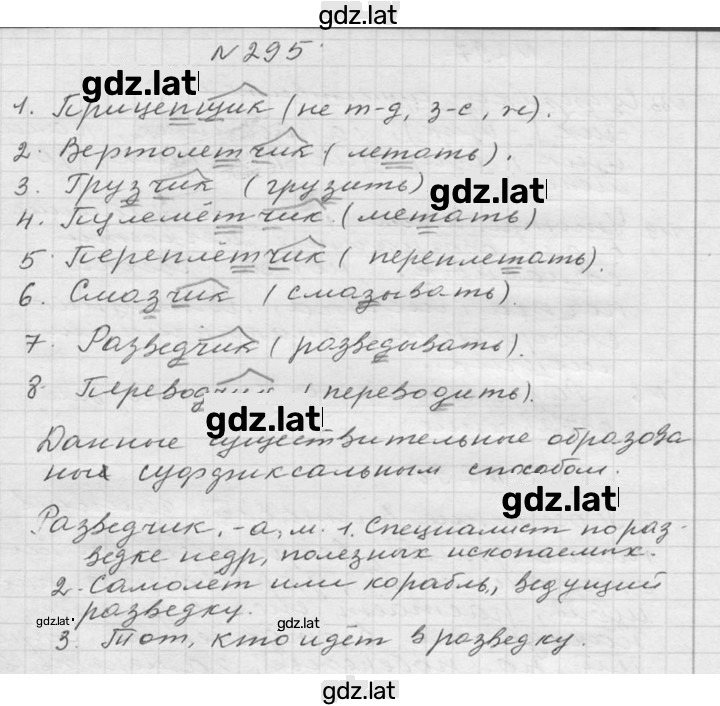 gdz.lat
№295.
gdz.lat
1. Прицепщик (не т-д, з-с, ж).
2. Вертолетчик (летать).
3. Грузчик (грузить)
gdz.lat
4. Пулемётчик (метать)
5. Переплётчик (переплетать).
6. Смазчик (смазывать).
7. Разведчик (разведывать).
8. Переводчик (переводить).
gdz.lat
Данные существительные образова
ны суффиксальным способом.
gdz.lat
Разведчик, -а, м. 1. Специалист по раз-
ведке недр, полезных ископаемых.
2. Самолёт или корабль, ведущий
разведку.
gdz.lat
gdz.lat
3. Тот, кто идёт в разведку.
gdz.lat